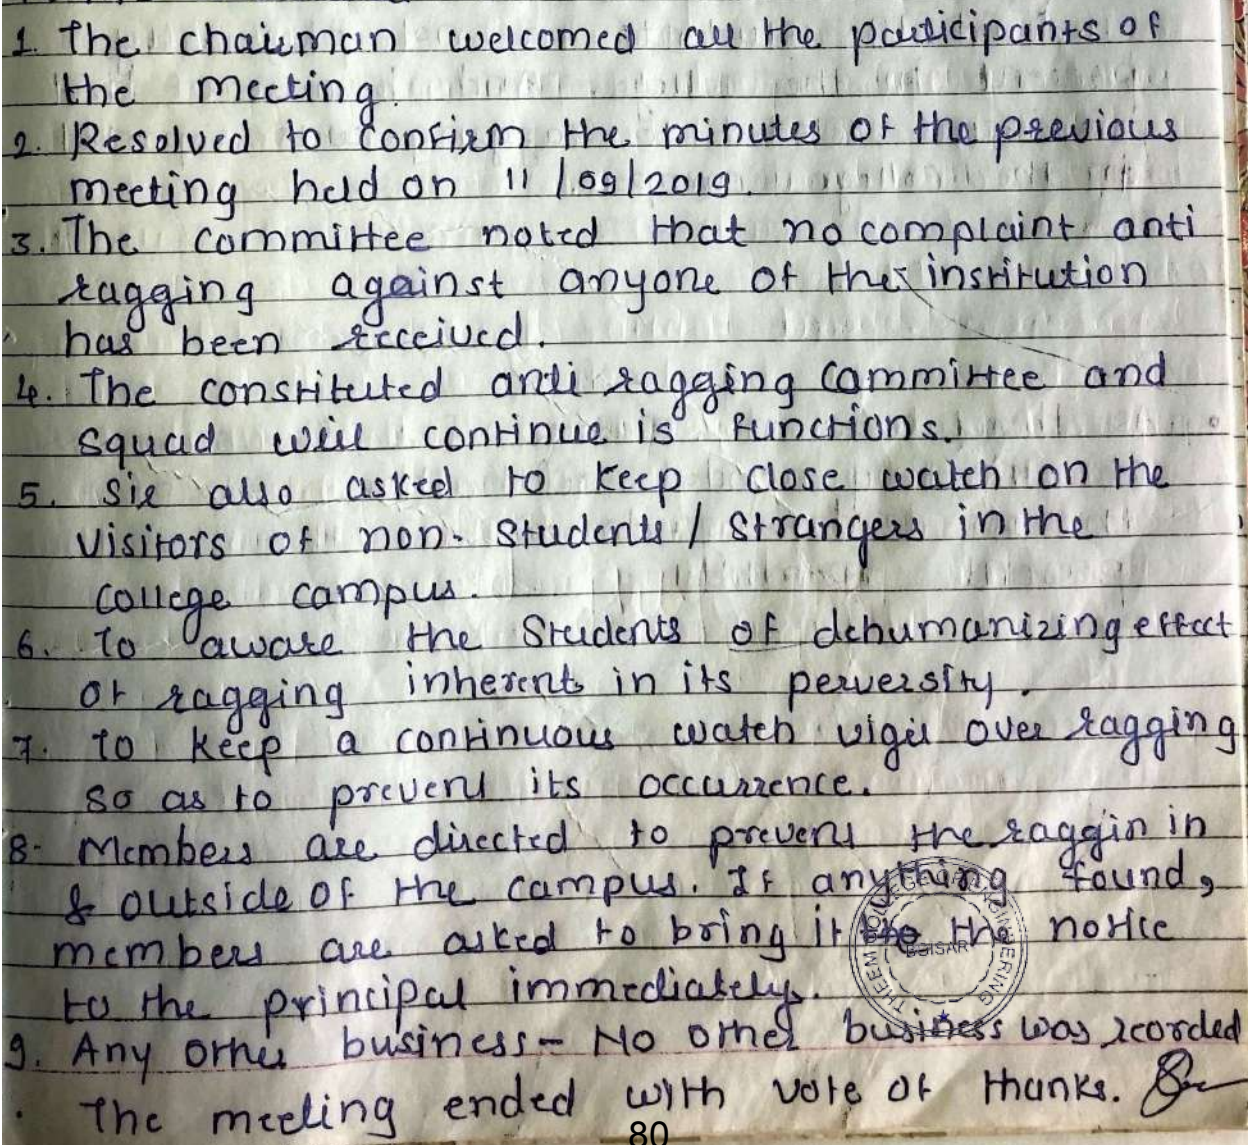 1. The chairman welcomed all the participants of
the meeting.
2. Resolved to confirm the minutes of the previous
meeting held on 11/09/2019.
3. The committee noted that no complaint anti
ragging against anyone of the institution
has been received.
4. The constituted anti ragging committee and
squad will continue is functions.
5. Sir also asked to keep close watch on the
visitors of non-students / strangers in the
college campus.
6. To aware the students of dehumanizing effect
of ragging inherent in its perversity.
7. To keep a continuous watch vigil over ragging
so as to prevent its occurrence.
8. Members are directed to prevent the raggin in
& outside of the campus. If anything found,
members are asked to bring it the the notice
to the principal immediately.
9. Any other business - No other business was rcorded
The meeting ended with vote of thanks.
80